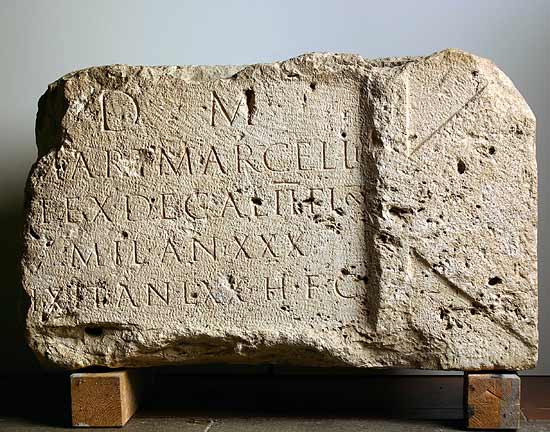 D M
MARCELL
EX DEC AL
MIL AN XXX
IXIT AN LXX H F C